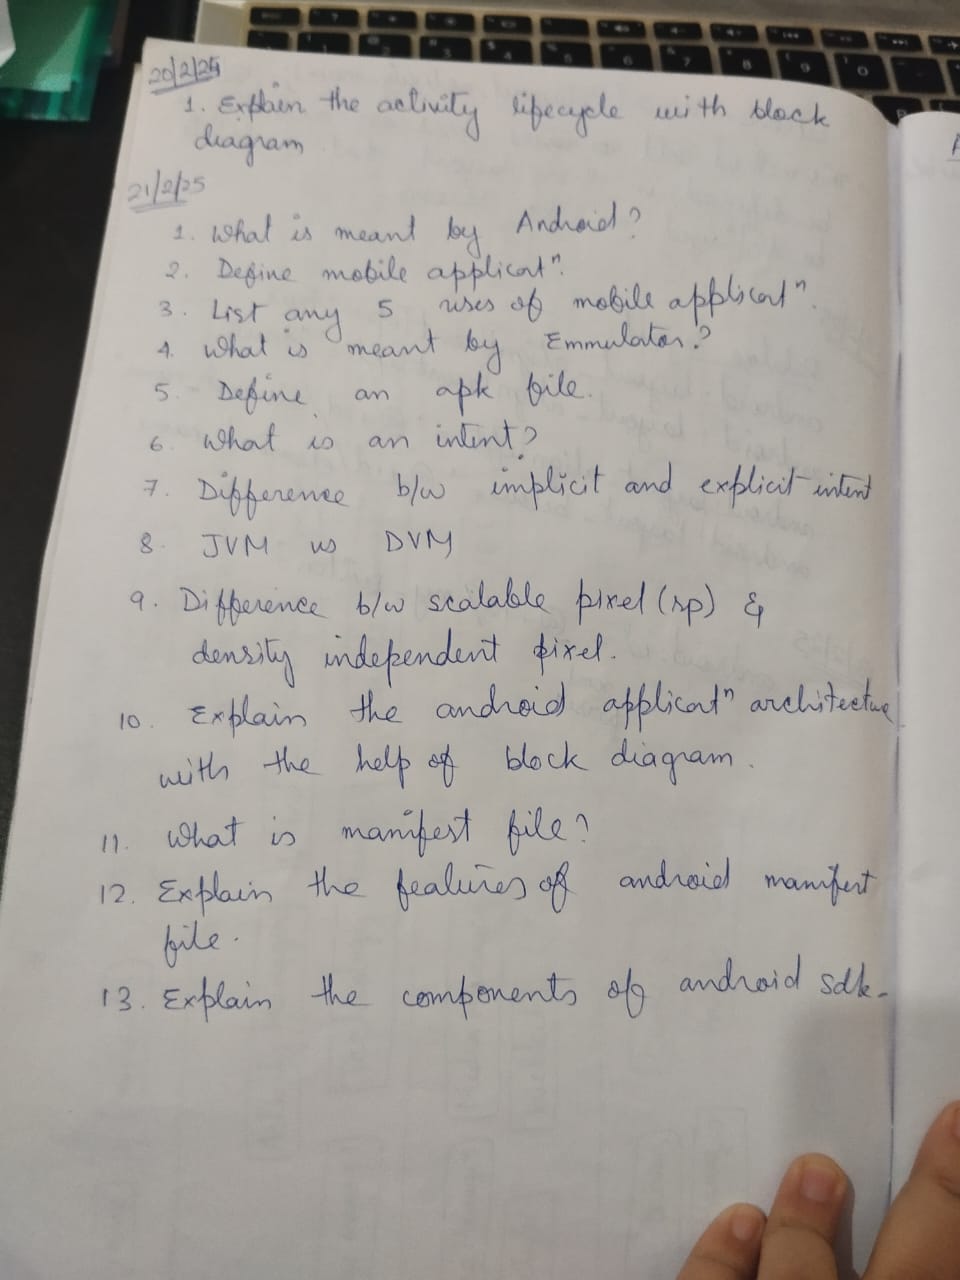 20/2/25
1. Explain the activity lifecycle with block
diagram
21/2/25
1. What is meant by Android?
2. Define mobile applicatⁿ.
3. List any 5 uses of mobile applicatⁿ.
4. What is meant by Emmulator?
5. Define an apk file.
6. What is an intent?
7. Difference b/w implicit and explicit intent
8. JVM vs DVM
9. Difference b/w scalable pixel (sp) &
density independent pixel.
10. Explain the android applicatⁿ architecture
with the help of block diagram.
11. What is manifest file?
12. Explain the features of android manifest
file.
13. Explain the components of android sdk.